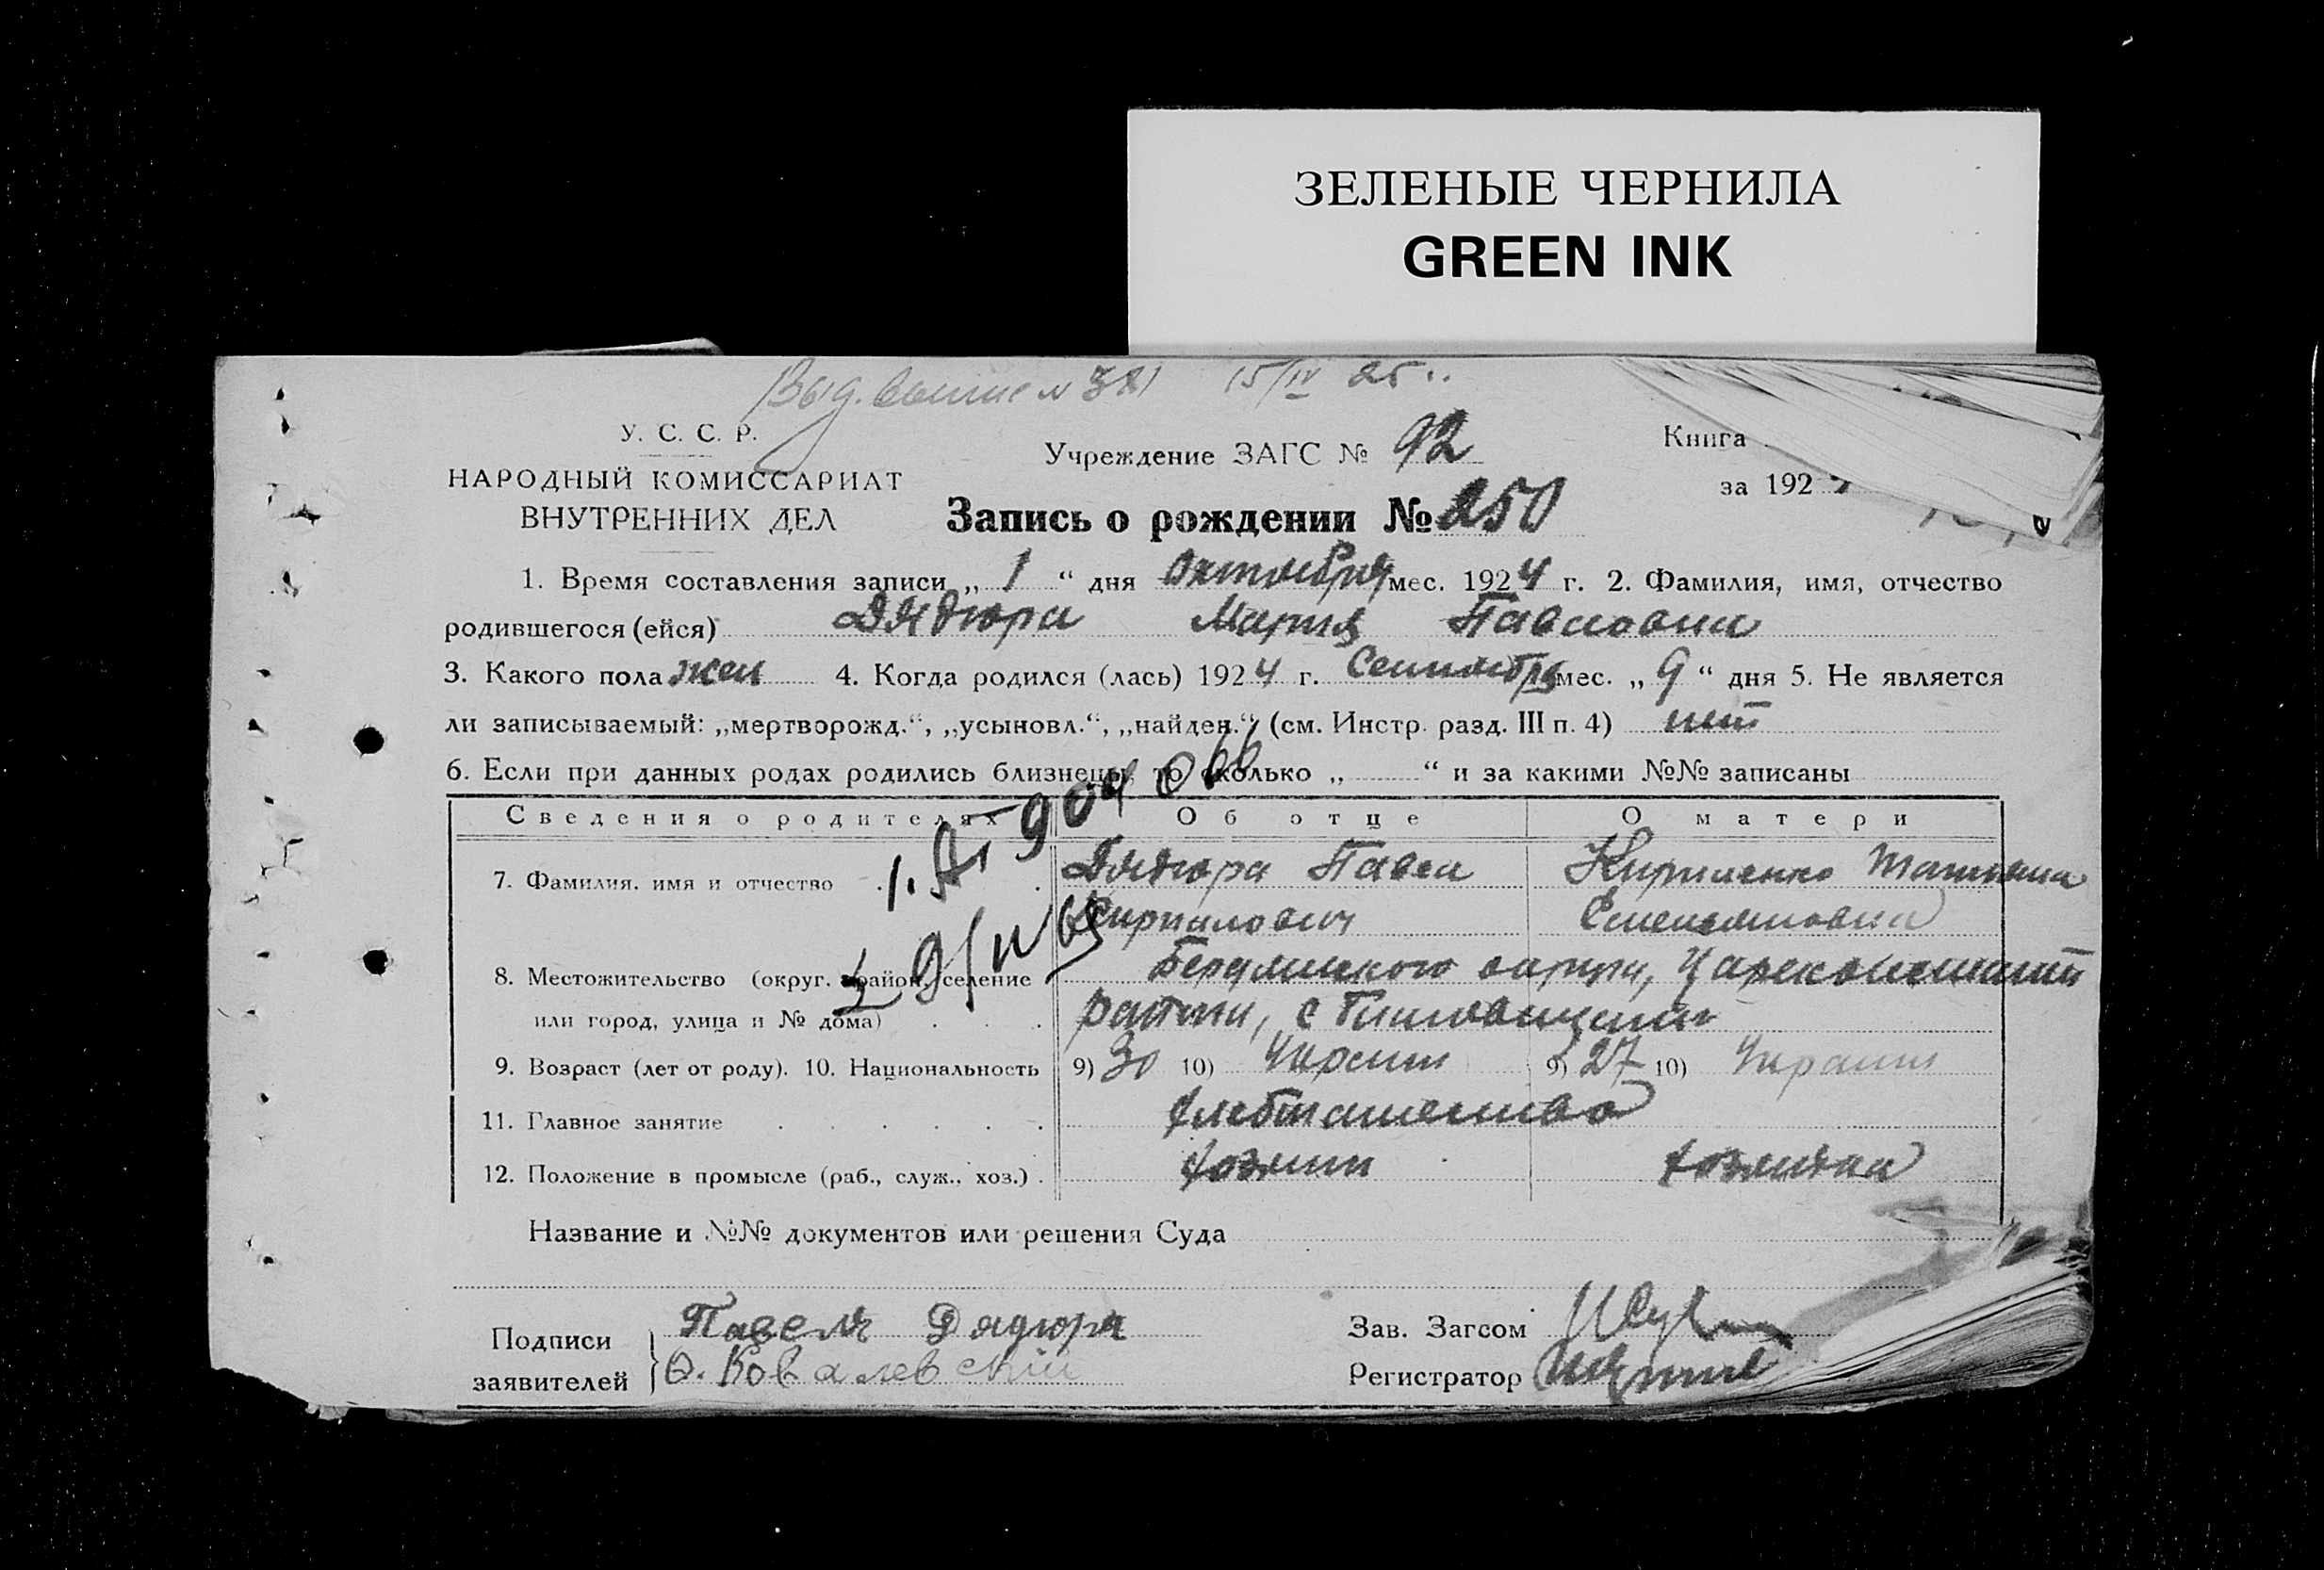 ЗЕЛЕНЫЕ ЧЕРНИЛА
GREEN INK
15/IV 25 г.
У. С. С. Р.
НАРОДНЫЙ КОМИССАРИАТ
ВНУТРЕННИХ ДЕЛ
Учреждение ЗАГС № 92
Книга
за 192
Запись о рождении № 250
1. Время составления записи „ 1 “ дня Октября мес. 1924 г. 2. Фамилия, имя, отчество
родившегося (ейся) Дядюра Мария Павловна
3. Какого пола жен 4. Когда родился (лась) 1924 г. Сентября мес. „ 9 “ дня 5. Не является
ли записываемый: „мертворожд.“, „усыновл.“, „найден.“ (см. Инстр. разд. III п. 4) нет
6. Если при данных родах родились близнецы, то сколько „ “ и за какими №№ записаны
Сведения о родителях Об отце О матери
7. Фамилия, имя и отчество Дядюра Павел Кириленко Татьяна
Кирилович Степановна
8. Местожительство (округ, район, селение Бердянского округа,
или город, улица и № дома) района, с
9. Возраст (лет от роду). 10. Национальность 9) 30 10) Украин 9) 27 10) Украин
11. Главное занятие хлебопашество
12. Положение в промысле (раб., служ., хоз.) хозяин хозяйка
Название и №№ документов или решения Суда
Подписи заявителей Павел Дядюра
Ковалевский
Зав. Загсом
Регистратор